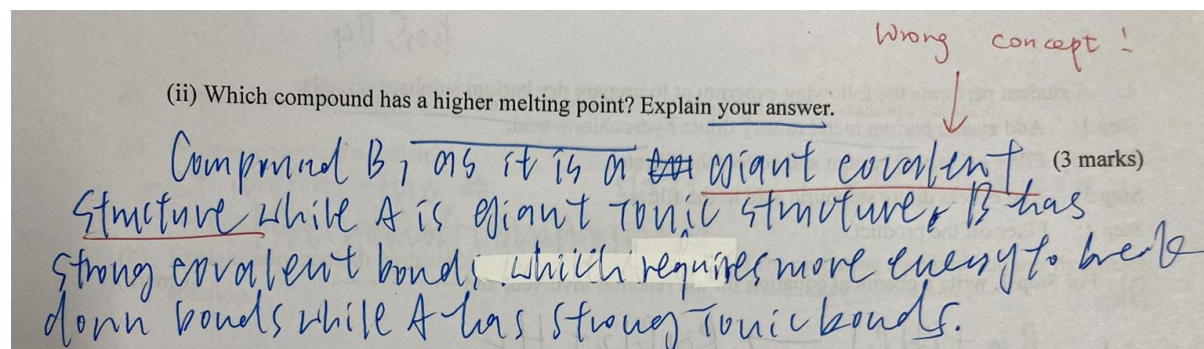 Wrong concept!
(ii) Which compound has a higher melting point? Explain your answer.
Compound B, as it is a giant covalent (3 marks)
structure while A is giant ionic structure. B has
strong covalent bonds which requires more energy to break
down bonds while A has strong ionic bonds.